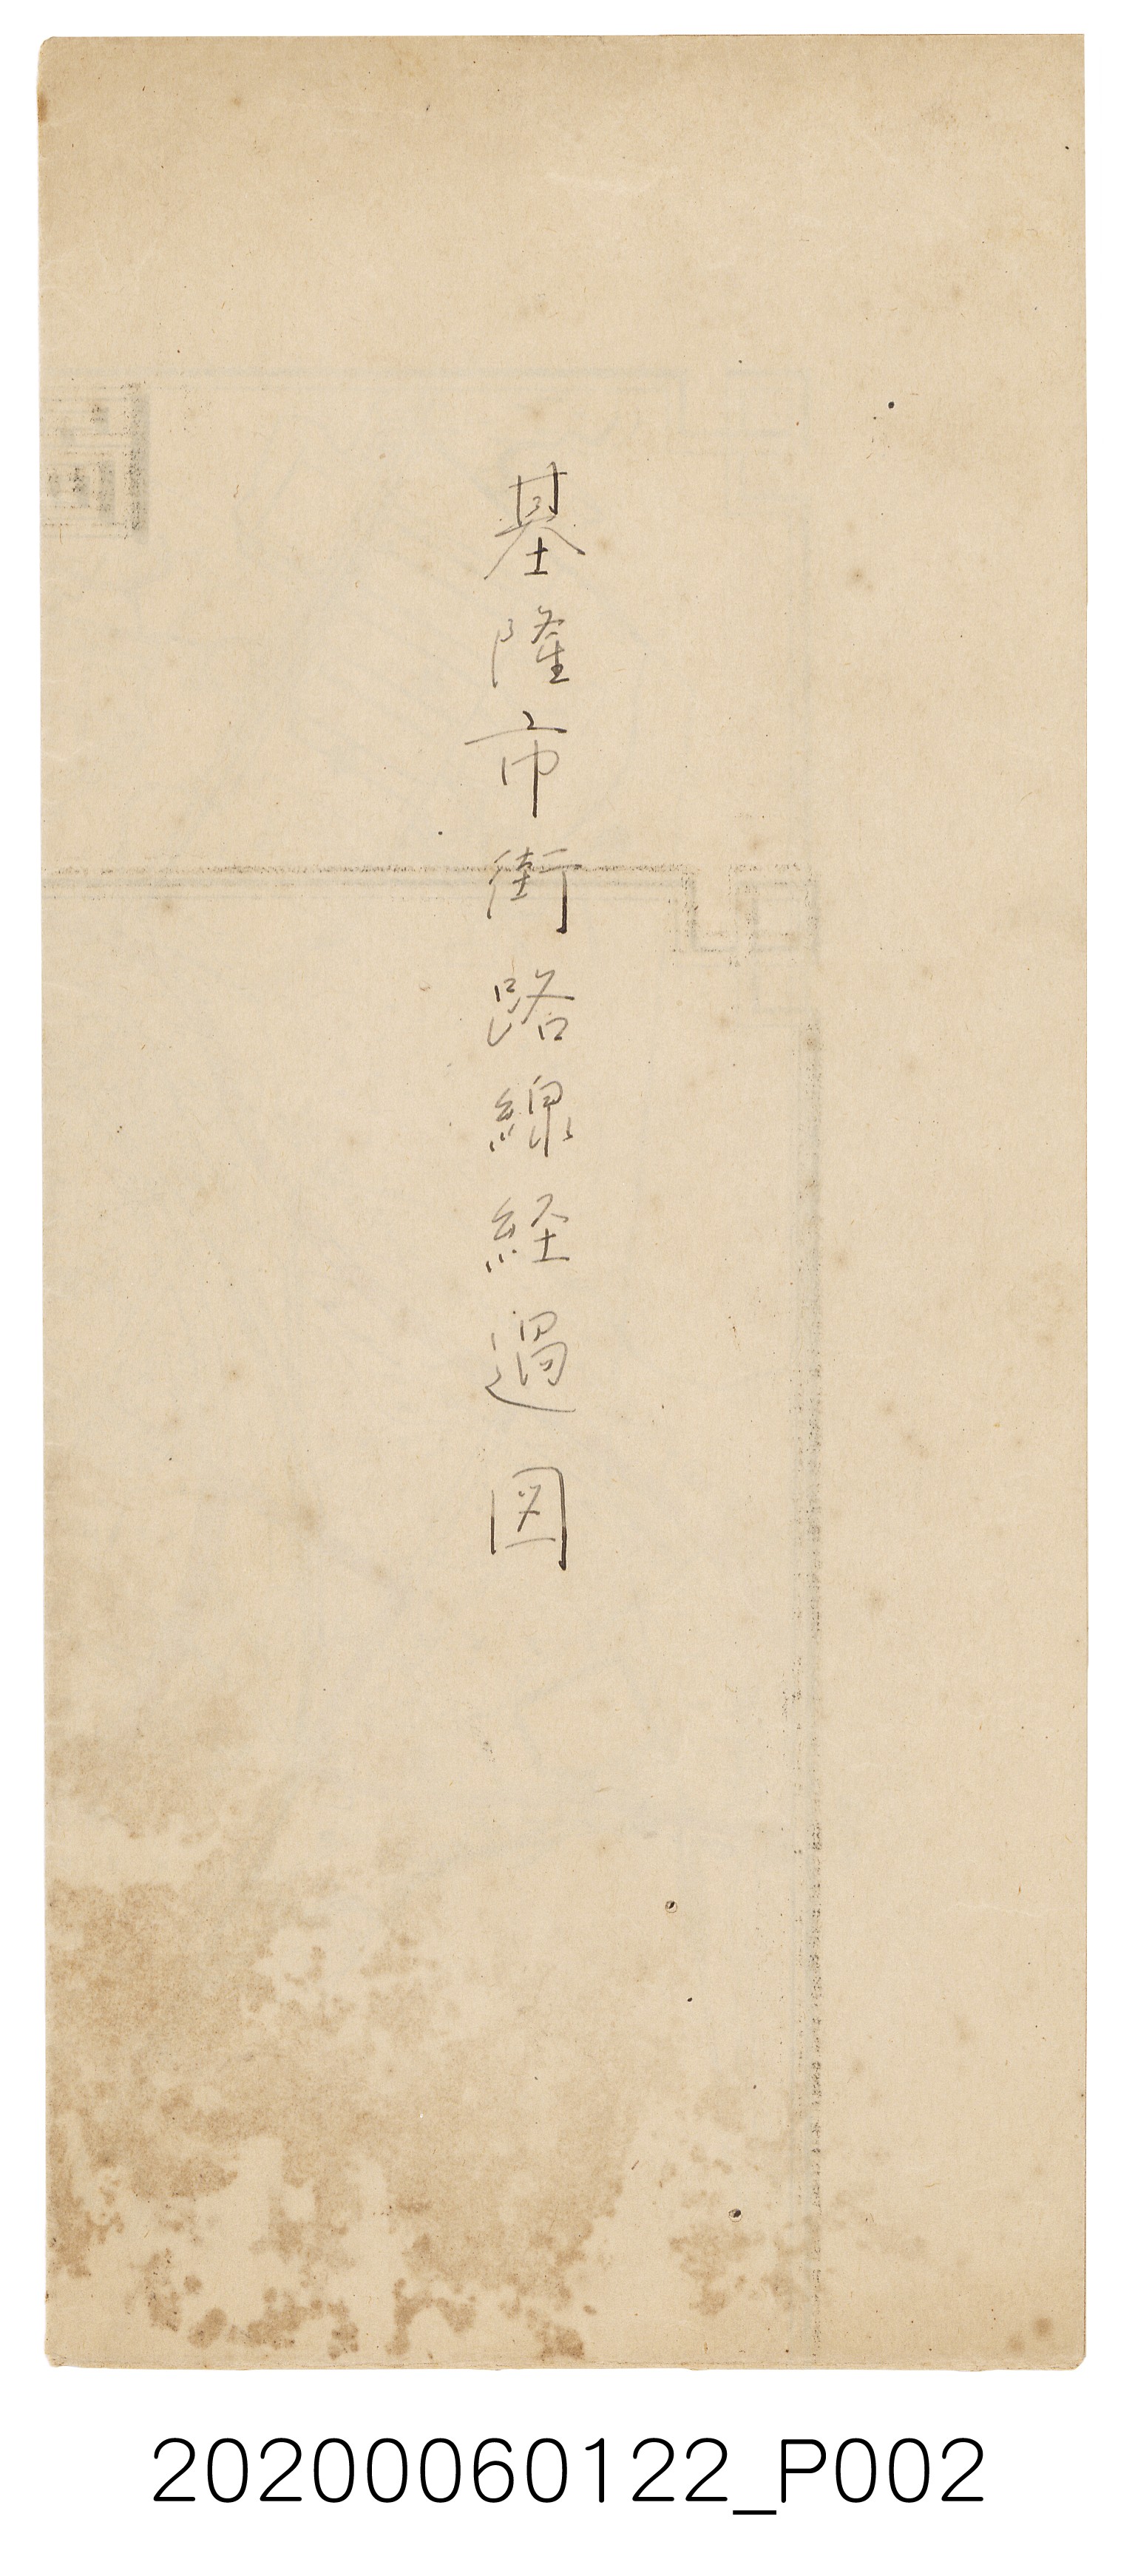 基隆市街路線経過図
20200060122_P002